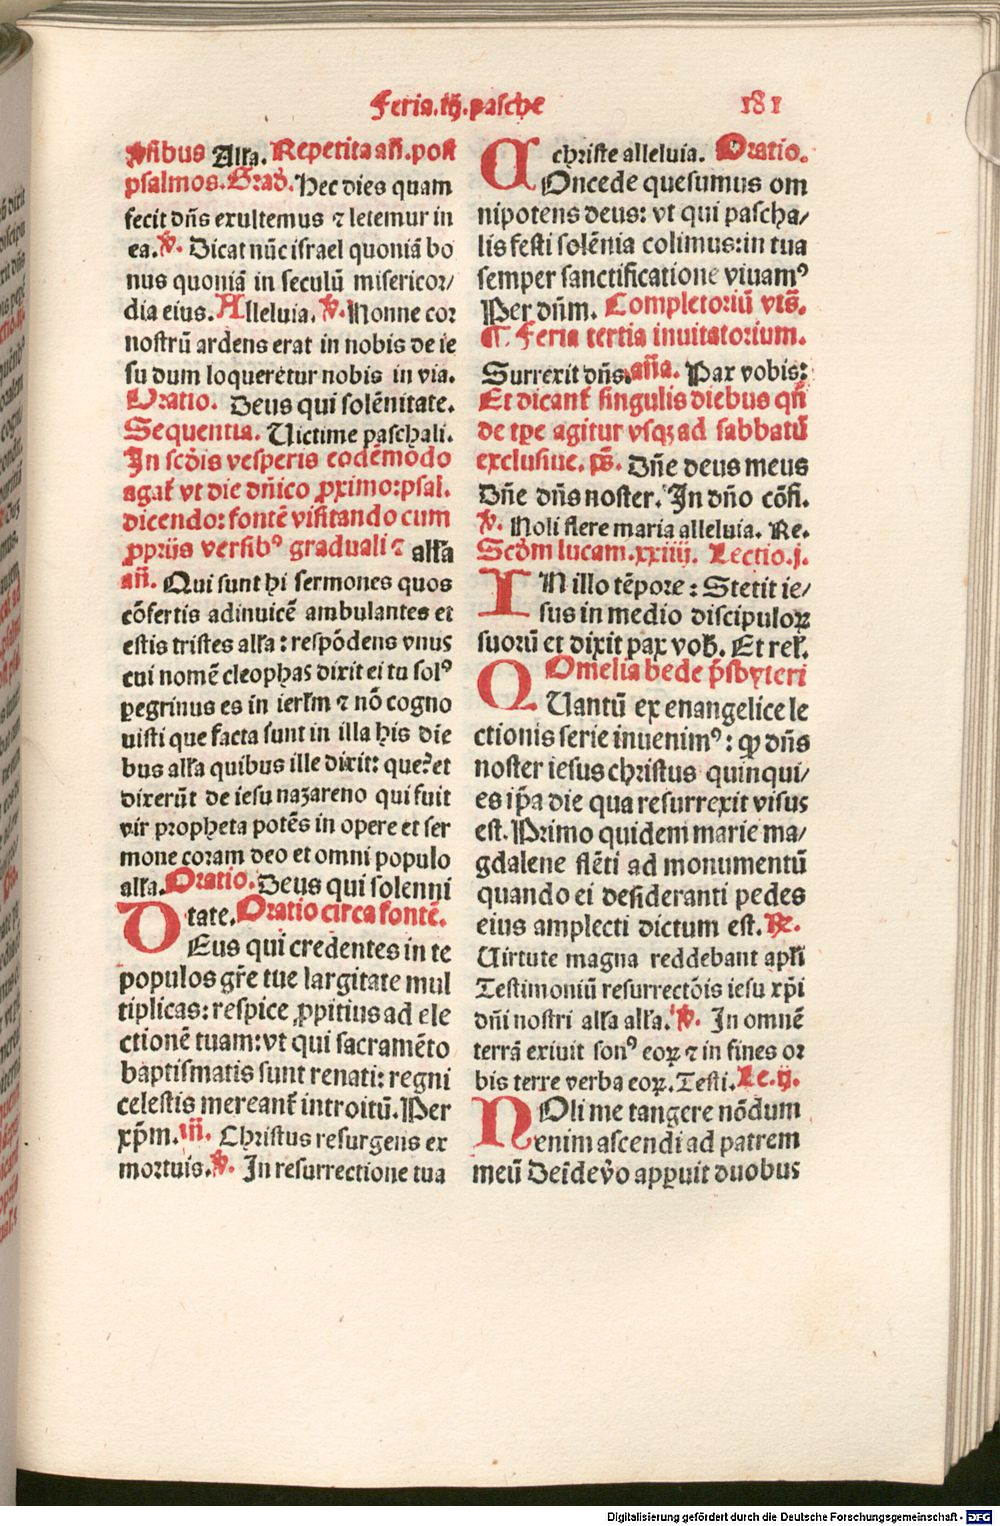 Feria.iij.pasche 181
ꝟsibus Alła. Repetita añ. post
psalmos. Grad̕. Hec dies quam
fecit dn̄s exultemus ⁊ letemur in
ea. ꝟ. Dicat nūc israel quoniā bo
nus quoniā in seculū misericor/
dia eius. Alleluia. ꝟ. Nonne cor
nostrū ardens erat in nobis de ie
su dum loqueretur nobis in via.
Oratio. Deus qui solēnitate.
Sequentia. Uictime paschali.
In scd̄is vesperis eodēmōdo
agat᷑ vt die dn̄ico ꝓximo: psal.
dicendo: fontē visitando cum
ꝓprijs versibꝰ graduali ⁊ alła
añ. Qui sunt hi sermones quos
cōfertis adinuicē ambulantes et
estis tristes alła: respōdens vnus
cui nomē cleophas dixit ei tu solꝰ
peregrinus es in ierłm ⁊ nō cogno
uisti que facta sunt in illa his die
bus alła quibus ille dixit: que? et
dixerūt de iesu nazareno qui fuit
vir propheta potēs in opere et ser
mone coram deo et omni populo
alła. Oratio. Deus qui solenni
tate. Oratio circa fontē.
DEus qui credentes in te
populos gr̄e tue largitate mul
tiplicas: respice ꝓpitius ad ele
ctionē tuam: vt qui sacramēto
baptismatis sunt renati: regni
celestis mereant᷑ introitū. Per
xp̄m. añ. Christus resurgens ex
mortuis. ꝟ. In resurrectione tua
christe alleluia. Oratio.
COncede quesumus om
nipotens deus: vt qui pascha/
lis festi solēnia colimus: in tua
semper sanctificatione viuamꝰ
Per dn̄m. Completoriū vts̄.
¶ Feria tertia inuitatorium.
Surrexit dn̄s. añā. Pax vobis:
Et dicant᷑ singulis diebus qn̄
de tp̄e agitur vsqꝫ ad sabbatū
exclusiue. ps̄. Dn̄e deus meus
Dn̄e dn̄s noster. In dn̄o cōfi.
ꝟ. Noli flere maria alleluia. Re.
Scd̄m lucam. xxiiij. Lectio. j.
IN illo tēpore: Stetit ie/
sus in medio discipuloꝝ
suorū et dixit pax vob̄. Et rel̄.
Omelia bede p̄sbyteri
QUantū ex enangelice le
ctionis serie inuenimꝰ: ꝙ dn̄s
noster iesus christus quinqui/
es ip̄a die qua resurrexit visus
est. Primo quidem marie ma/
gdalene flēti ad monumentū
quando ei desideranti pedes
eius amplecti dictum est. ℞.
Uirtute magna reddebant apłi
Testimoniū resurrectōis iesu xp̄i
dn̄i nostri alła alła. ꝟ. In omnē
terrā exiuit sonꝰ eoꝝ ⁊ in fines or
bis terre verba eoꝝ. Testi. Le. ij.
NOli me tangere nōdum
enim ascendi ad patrem
meū Dein̄de v̊o apparuit duobus
Digitalisierung gefördert durch die Deutsche Forschungsgemeinschaft - DFG